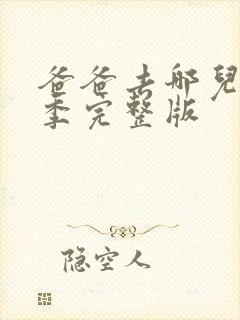 爸爸去哪兒
季完整版
隐空人